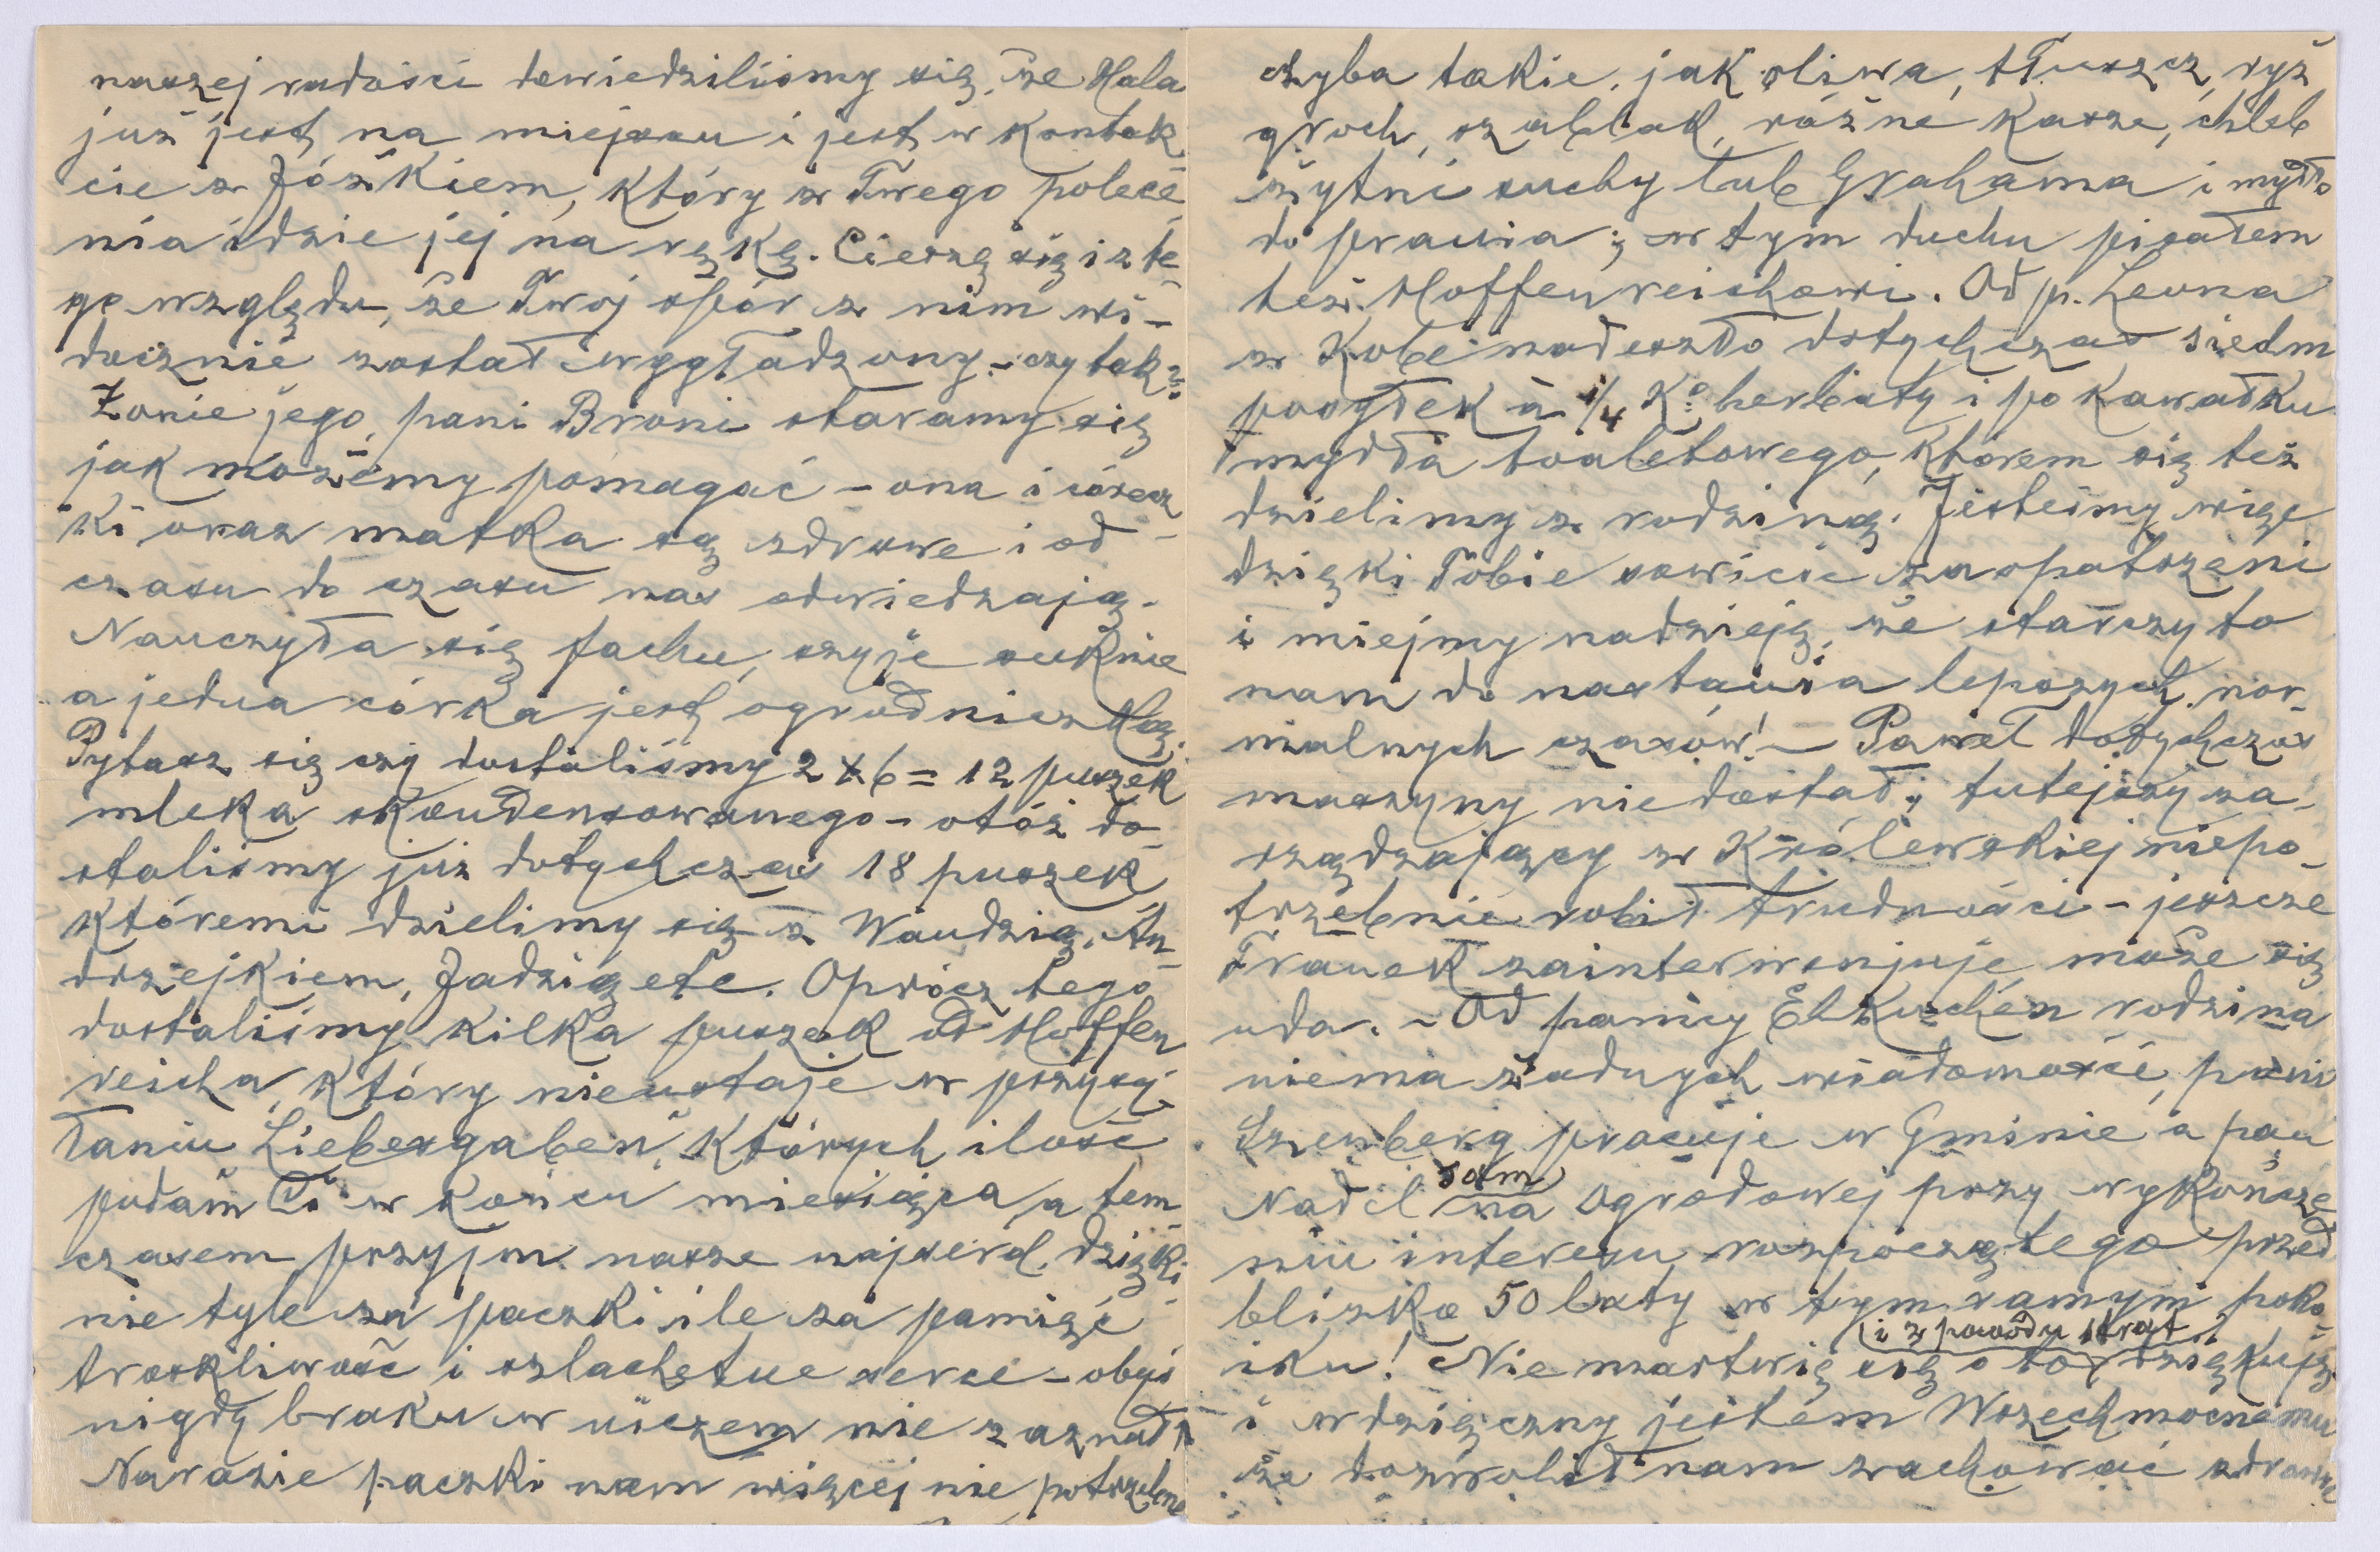 naszej radości dowiedziliśmy się, że Hala
już jest na miejscu i jest w kontak
cie z Józkiem, który z Twego polece
nia idzie jej na rękę. Cieszę się i z te
go względu, że Twoj spór z nim wi-
docznie został wygładzony - czy tak?
Żonie jego, pani Broni staramy się
jak możemy pomagać - ona i córecz
ki oraz matka są zdrowe i od
czasu do czasu nas odwiedzają.
Nauczyła się fachu, szyje suknie
a jedna córka jest ogrodniczką.
Pytasz się czy dostaliśmy 2 x 6 = 12 puszek
mleka skondensowanego - otóż do-
staliśmy już dotychczas 18 puszek
któremi dzielimy się z Wandzią, An
drzejkiem, Jadzią etc. Oprócz tego
dostaliśmy kilka puszek od Hoffen
reicha, który nieustaje w przysy-
łaniu „Liebesgaben", których ilość
podam Ci w końcu miesiąca, a tem
czasem przyjm. nasze najserd. dzięki
nie tyle za paczki ile za pamięć
troskliwość i szlachetne serce - obyś
nigdy braku w niczem nie zaznał!
Narazie paczki nam więcej nie potrzebne
chyba takie, jak oliwa, tłuszcz, ryż
groch, szablak, różne kasze, chleb
żytni suchy lub Grahama i mydło
do prania; w tym duchu pisałem
też Hoffenreichowi. Od p. Leona
z Kobe nadeszło dotychczas siedm
posyłek à 1/4 Ko herbaty i po kawałku
mydła toaletowego, którem się też
dzielimy z rodziną. Jesteśmy więc
dzięki Tobie sowicie zaopatrzeni
i miejmy nadzieję, że starczy to
nam do nastania lepszych, nor-
malnych czasów! - Paweł dotychczas
maszyny nie dostał; tutejszy za-
rządzający w Królewskiej niepo-
trzebnie robił trudności - jeszcze
Franek zainterwenjuje, może się
uda. - Od panny Elkuchen rodzina
niema żadnych wiadomości, pani
Szenberg pracuje w Gminie a pan
Nadel sam na Ogrodowej przy wykończe
niu interesu rozpoczętego przed
blizko 50 laty w tym samym poko-
iku! Nie martwię się o to i z powodu strat, dziękuję
i wdzięczny jestem Wszechmocnemu
że dozwolił nam zachować zdrowie